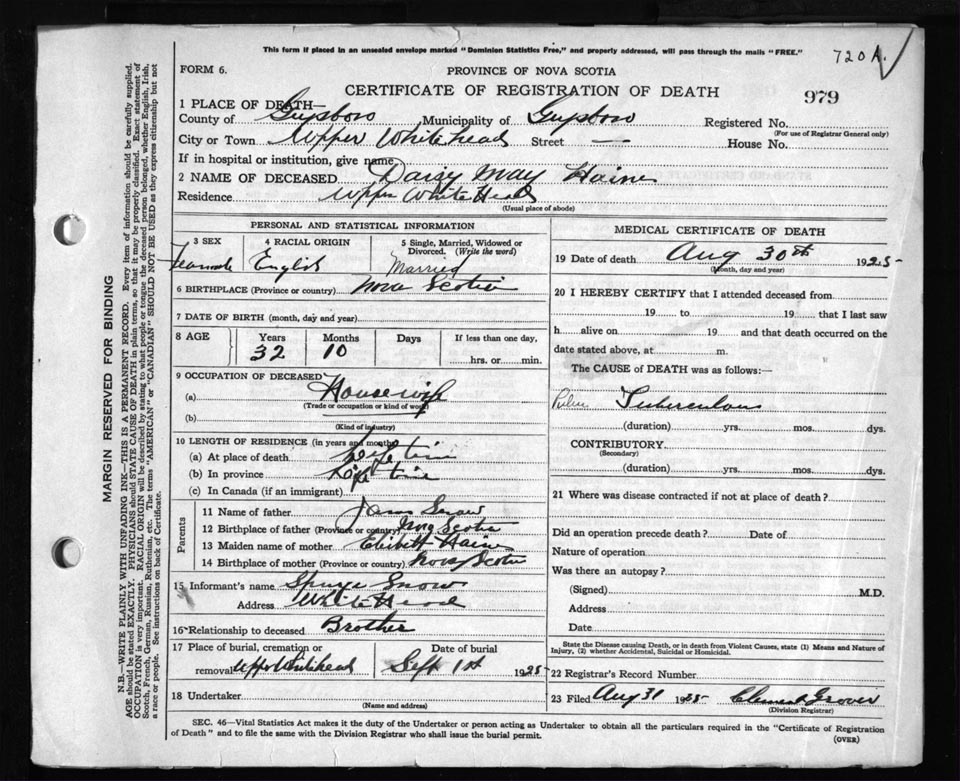 This form if placed in an unsealed envelope marked "Dominion Statistics Free," and properly addressed, will pass through the mails "FREE."
720A.
FORM 6.
PROVINCE OF NOVA SCOTIA
CERTIFICATE OF REGISTRATION OF DEATH
979
1 PLACE OF DEATH—
County of Guysboro Municipality of Guysboro Registered No.
(For use of Registrar General only)
City or Town Upper Whitehead Street — House No.
If in hospital or institution, give name
2 NAME OF DECEASED Daisy May Haine
Residence Upper White Head
(Usual place of abode)
PERSONAL AND STATISTICAL INFORMATION
3 SEX
4 RACIAL ORIGIN
5 Single, Married, Widowed or Divorced. (Write the word)
English
Married
6 BIRTHPLACE (Province or country) Nova Scotia
7 DATE OF BIRTH (month, day and year)
8 AGE Years Months Days If less than one day,
32 10 hrs. or min.
9 OCCUPATION OF DECEASED
(a) Housewife
(Trade or occupation or kind of work)
(b)
(Kind of industry)
10 LENGTH OF RESIDENCE (in years and months)
(a) At place of death life time
(b) In province life time
(c) In Canada (if an immigrant)
Parents
11 Name of father James Snow
12 Birthplace of father (Province or country) Nova Scotia
13 Maiden name of mother Haine
14 Birthplace of mother (Province or country) Nova Scotia
15 Informant's name Snow
Address White Head
16 Relationship to deceased Brother
17 Place of burial, cremation or Date of burial
removal Upper Whitehead Sept 1st 1925
18 Undertaker
(Name and address)
MEDICAL CERTIFICATE OF DEATH
19 Date of death Aug 30th 1925
(Month, day and year)
20 I HEREBY CERTIFY that I attended deceased from
19 to 19 that I last saw
h alive on 19 and that death occurred on
date stated above, at m.
The CAUSE of DEATH was as follows:—
Tuberculous
(duration) yrs. mos. dys.
CONTRIBUTORY
(Secondary)
(duration) yrs. mos. dys.
21 Where was disease contracted if not at place of death?
Did an operation precede death? Date of
Nature of operation
Was there an autopsy?
(Signed) M.D.
Address
Date
State the Disease causing Death, or in death from Violent Causes, state (1) Means and Nature of
Injury, (2) whether Accidental, Suicidal or Homicidal.
22 Registrar's Record Number
23 Filed Aug 31 1925 Grover
(Division Registrar)
SEC. 46—Vital Statistics Act makes it the duty of the Undertaker or person acting as Undertaker to obtain all the particulars required in the "Certificate of Registration
of Death" and to file the same with the Division Registrar who shall issue the burial permit.
(OVER)
MARGIN RESERVED FOR BINDING
N.B.—WRITE PLAINLY WITH UNFADING INK—THIS IS A PERMANENT RECORD. Every item of information should be carefully supplied.
AGE should be stated EXACTLY. PHYSICIANS should STATE CAUSE OF DEATH in plain terms, so that it may be properly classified. Exact statement of
OCCUPATION is very important. RACIAL ORIGIN will be described by stating to what people or tongue the deceased person belonged, whether English, Irish,
Scotch, French, German, Russian, Ruthenian, etc. The terms "AMERICAN" or "CANADIAN" SHOULD NOT BE USED as they express citizenship but not
a race or people. See instructions on back of Certificate.